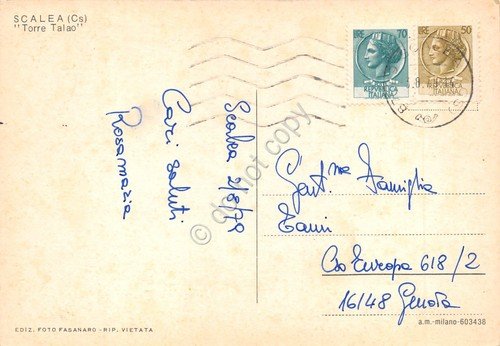 SCALEA (Cs)
"Torre Talao"
LIRE 70
REPUBBLICA
ITALIANA
LIRE 50
REPUBBLICA
ITALIANA
Scalea 2/8/79
Cari saluti
Rosamaria
Gent.ma Famiglia
Cso Europa 618/2
16148 Genova
EDIZ. FOTO FASANARO - RIP. VIETATA
a.m.-milano-603438
do not copy